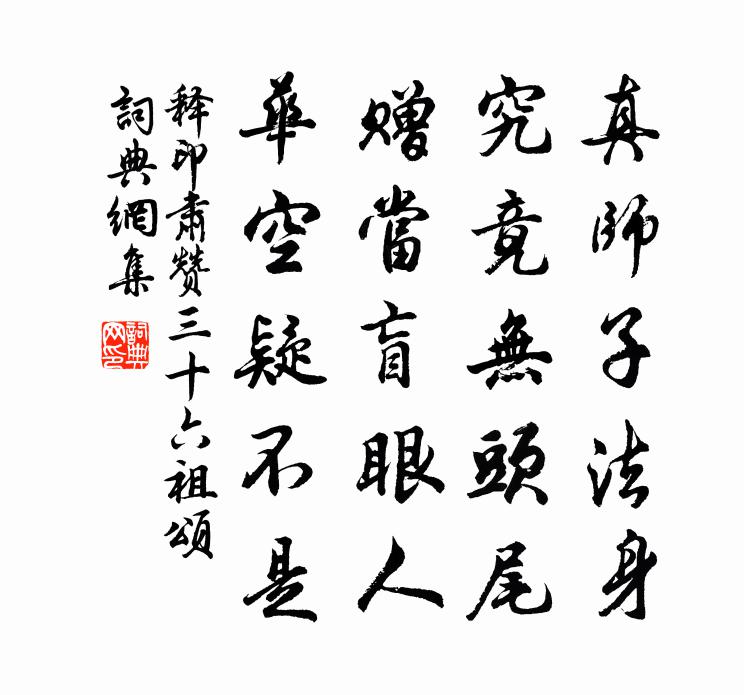 真師子法身
究竟無頭尾
贈當盲眼人
華空疑不是
释印肅贊三十六祖頌
詞典網集
詞典網印